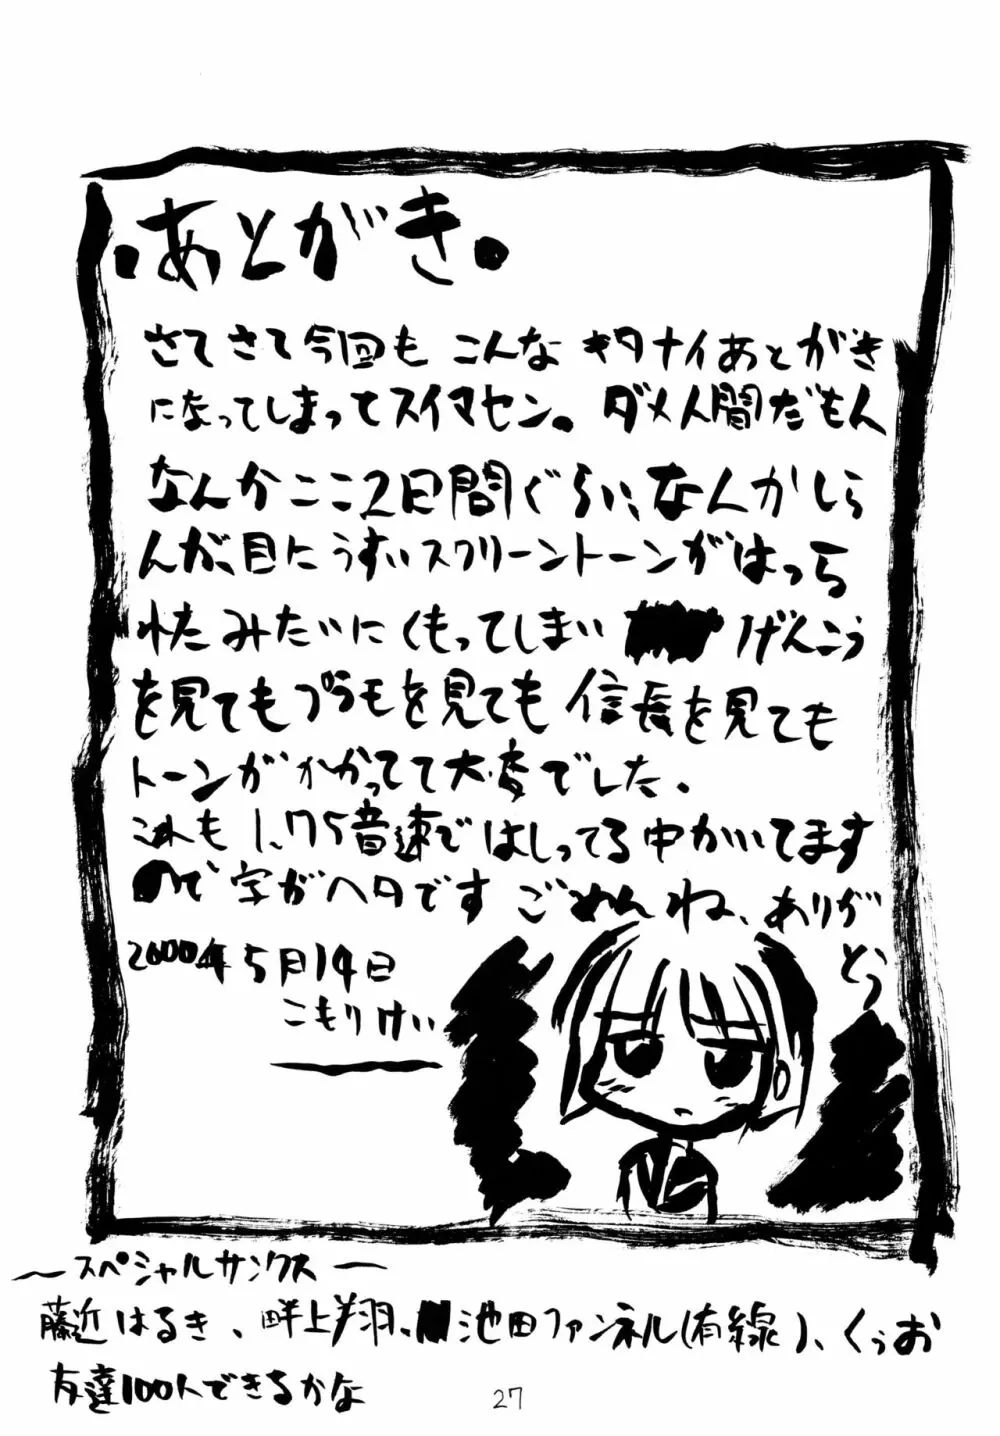 ・あとがき。
さてさて今回も こんな キタナイあとがき
になってしまってスイマセン。ダメ人間だもん
なんかここ2日間ぐらい、なんかしら
んが、目にうすいスクリーントーンがはっら
れたみたいにくもってしまい げんこう
を見てもプラモを見ても 信長を見ても
トーンがかかってて大変でした。
これも 1.75音速ではしってる中かいてます
ので字がヘタです ごめんね、ありが
とう
2000年5月14日
こもりけい
〜スペシャルサンクス〜
藤近はるき、畔上翔、池田ファンネル(有線)、くぅお
友達100人できるかな
27